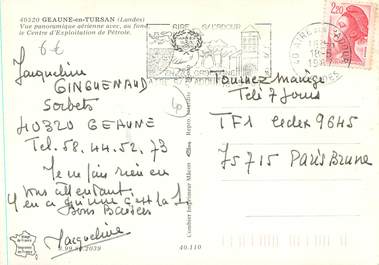 40320 GEAUNE-en-TURSAN (Landes)
Vue panoramique aérienne avec, au fond,
le Centre d'Exploitation de Pétrole.
6€
Jacqueline
GINGUENAUD
Sorbets
40320 GEAUNE
Tel. 58.44.52.73
Je ne fais rien en
vous attendant.
Y en a qu'une c'est la 1
Bons Baisers
Jacqueline
40.110
Combier Imprimeur Mâcon
2,20
Tournez manège
Télé 7 Jours
TF1 Cedex 9645
75715 Paris Brune